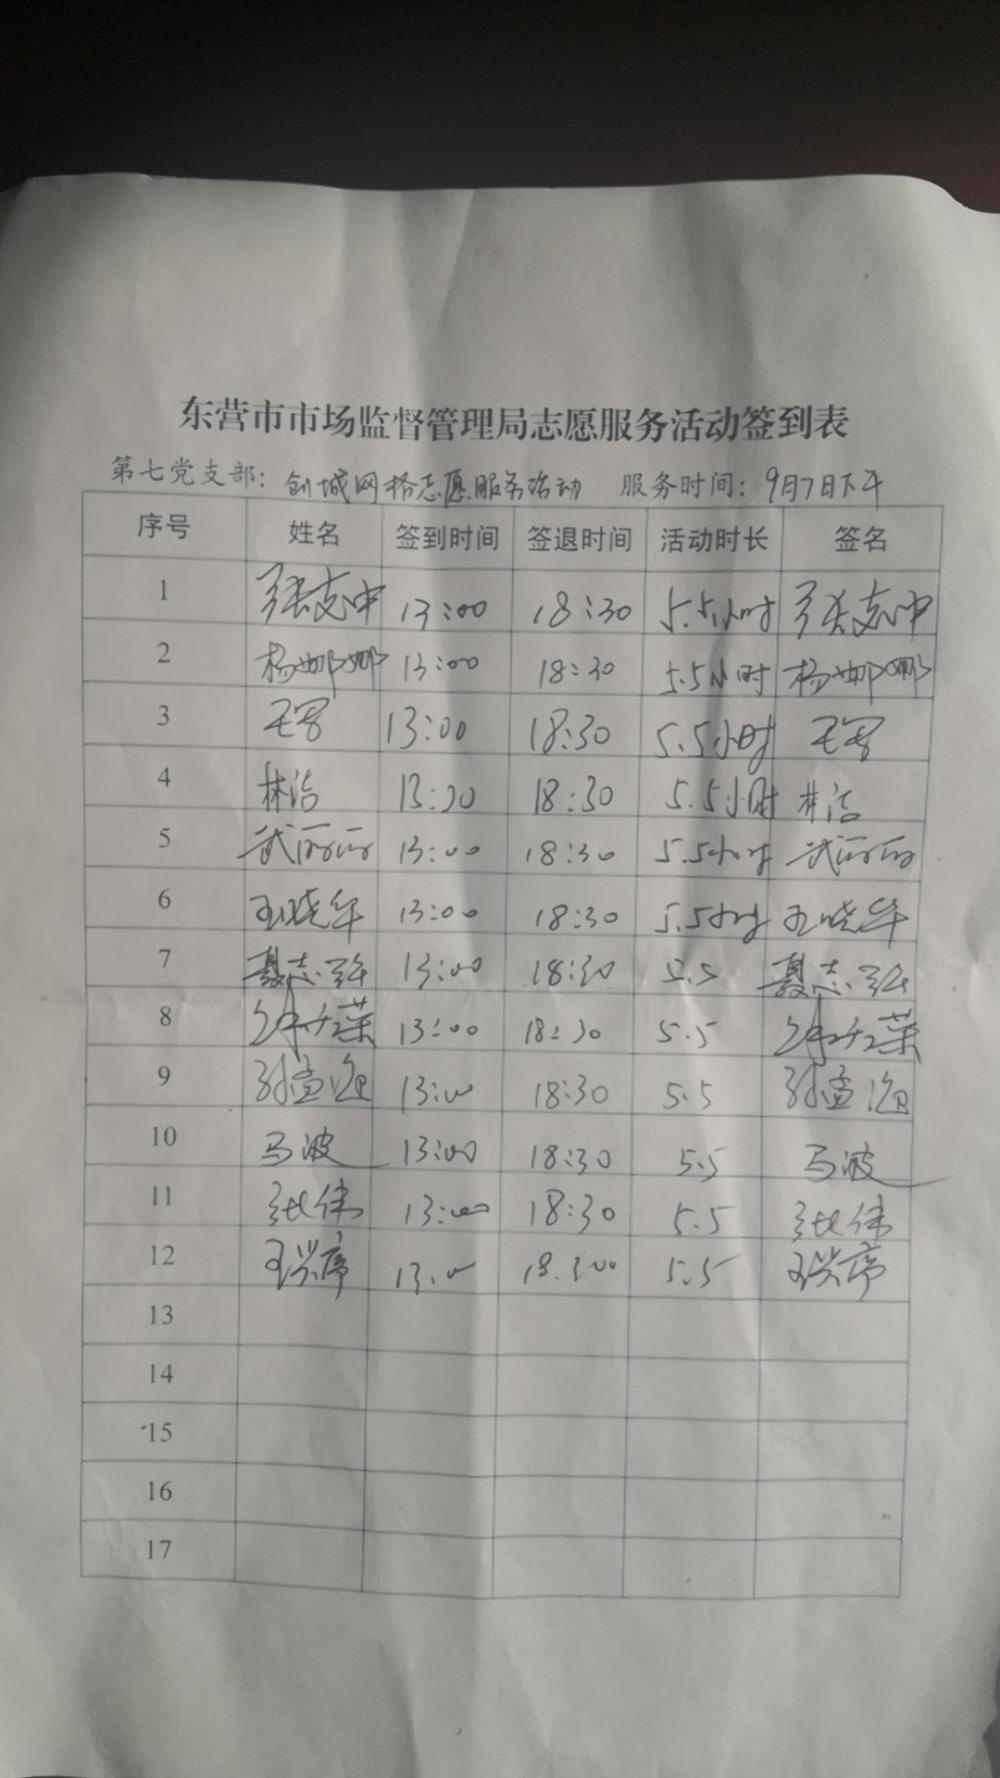 东营市市场监督管理局志愿服务活动签到表
第七党支部：创城网格志愿服务活动 服务时间：9月7日下午
序号 姓名 签到时间 签退时间 活动时长 签名
1 张志中 13:00 18:30 5.5小时 张志中
2 杨娜娜 13:00 18:30 5.5小时 杨娜娜
3 13:00 18:30 5.5小时
4 林洁 13:00 18:30 5.5小时 林洁
5 武丽丽 13:00 18:30 5.5小时 武丽丽
6 王晓华 13:00 18:30 5.5小时 王晓华
7 聂志强 13:00 18:30 5.5 聂志强
8 13:00 18:30 5.5
9 孙孟 13:00 18:30 5.5 孙孟
10 马波 13:00 18:30 5.5 马波
11 张伟 13:00 18:30 5.5 张伟
12 13:00 18:300 5.5
13
14
15
16
17